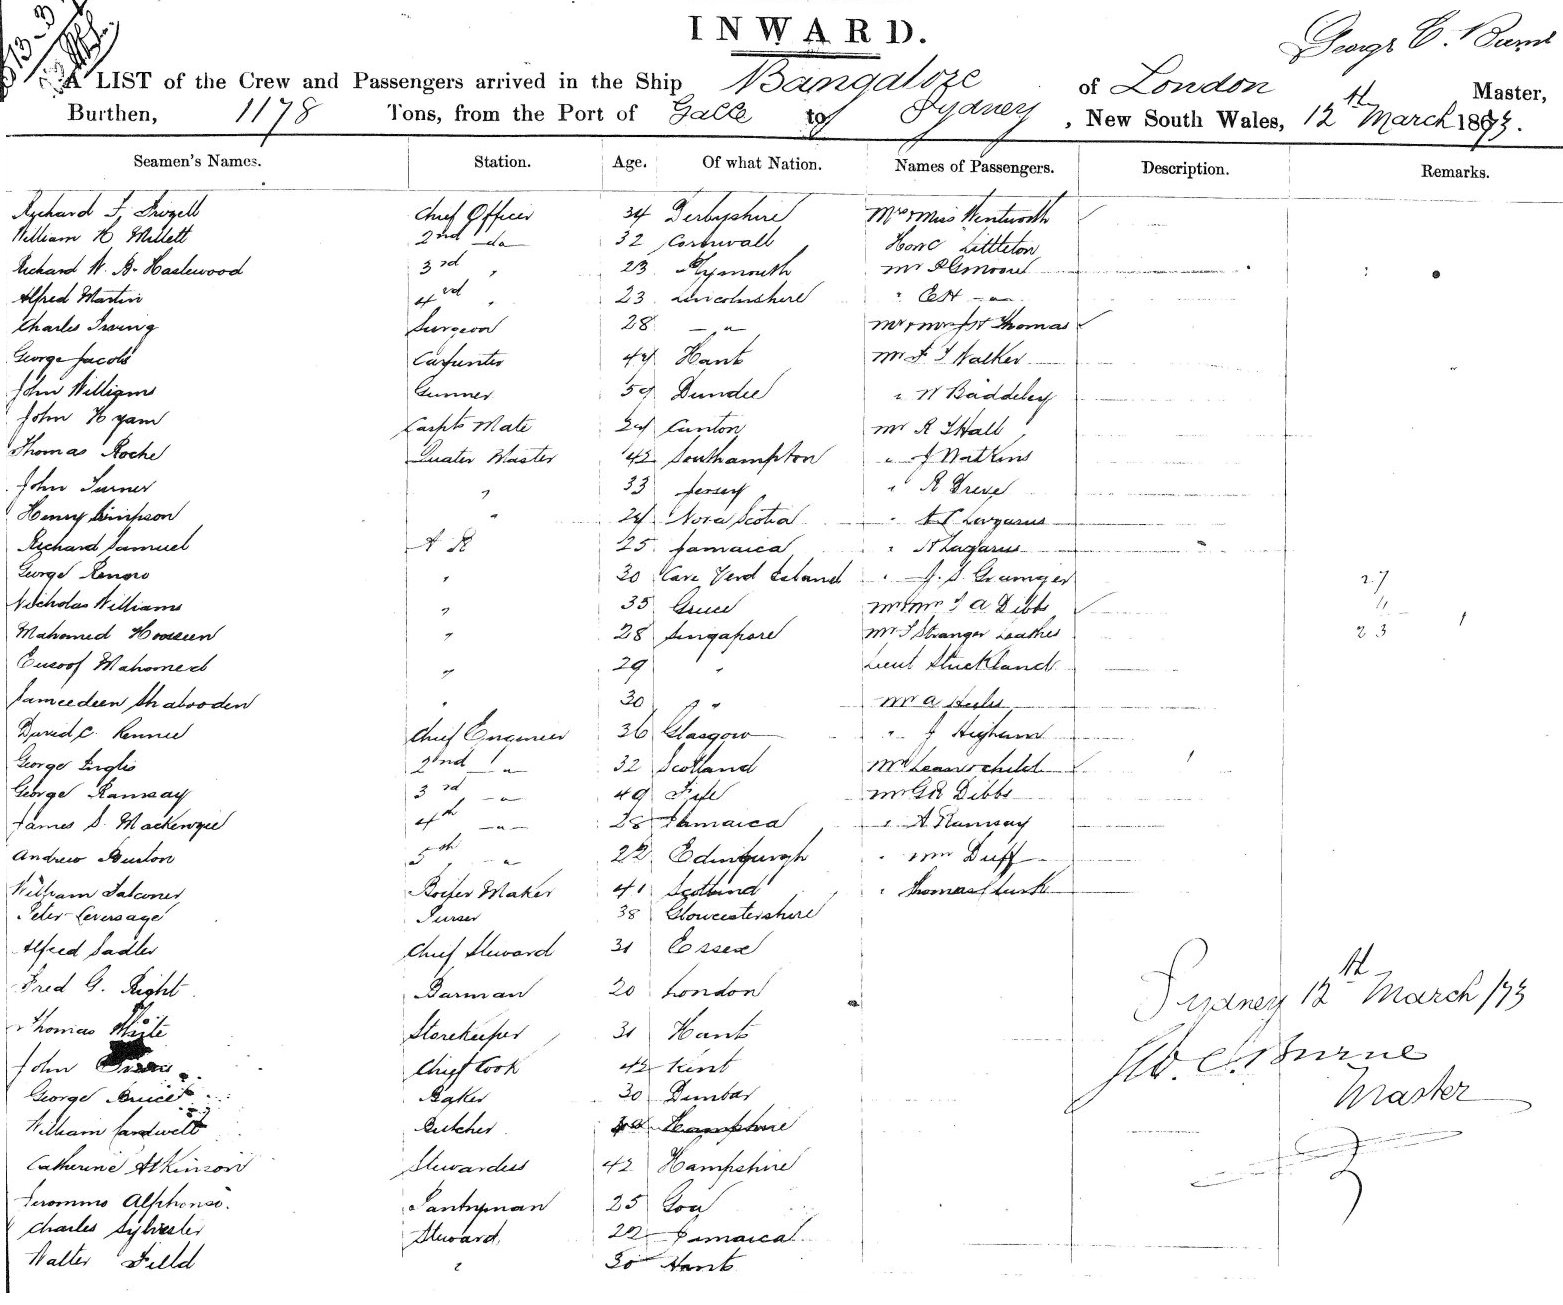 INWARD.
George C. Burne
A LIST of the Crew and Passengers arrived in the Ship Bangalore of London Master,
Burthen, 1178 Tons, from the Port of Galle to Sydney, New South Wales, 12th March 1873.
Seamen's Names. Station. Age. Of what Nation. Names of Passengers. Description. Remarks.
Richard F. Chief Officer 34 Derbyshire Mrs & Miss Wentworth
William H Millett 2nd do 32 Cornwall Honc Littleton
Richard W. B. Haslewood 3rd " 23 Plymouth Mr Moore
Alfred Martin 4rd " 23 Lincolnshire " EH do
Charles Irving Surgeon 28 — " Mr & Mrs J H Thomas
George Jacobs Carpenter 44 Hants Mr F T Walker
John Williams Gunner 59 Dundee " W Baddeley
John Hyam Carpts Mate 24 Canton Mr R T Hall
Thomas Roche Quater Master 42 Southampton " J Watkins
John Turner " 33 Jersey " R Greve
Henry Simpson " 24 Nova Scotia " Lazarus
Richard Samuel A B 25 Jamaica " H Lazarus
George " 30 Cape Verd Island " J. S. Grainger 27
Nicholas Williams " 35 Greece Mr & Mrs T A Dibbs 11
Mahomed Hoosein " 28 Singapore Mr T Stranger Leathes 23
Eusoof Mahomed " 29 " Lieut Stuckland
Jameedeen Shabooden " 30 " " Mr A
David C. Rennie Chief Engineer 36 Glasgow " J Higham
George Inglis 2nd — " 32 Scotland Mrs Lean & child
George Ramsay 3rd — " 49 Fife Mr G R Dibbs
James S. Mackenzie 4th — " 28 Jamaica " A Ramsay
Andrew Burton 5th — " 22 Edinburgh " Duff
William Falconer Boiler Maker 41 Scotland " Thomas Clark
Peter Leversage Purser 38 Gloucestershire
Alfred Sadler Chief Steward 31 Essex
Fred G. Right Barman 20 London
Thomas White Storekeeper 31 Hants
John Chief Cook 42 Kent
George Bruice Baker 30 Dunbar
William Cardwell Butcher Hampshire
Catherine Atkinson Stewardess 42 Hampshire
Jerommo Alphonso. Pantryman 25 Goa
Charles Sylvester Steward 22 Jamaica
Walter Field " 30 Hants
Sydney 12th March /73
Geo. C. Burne
Master